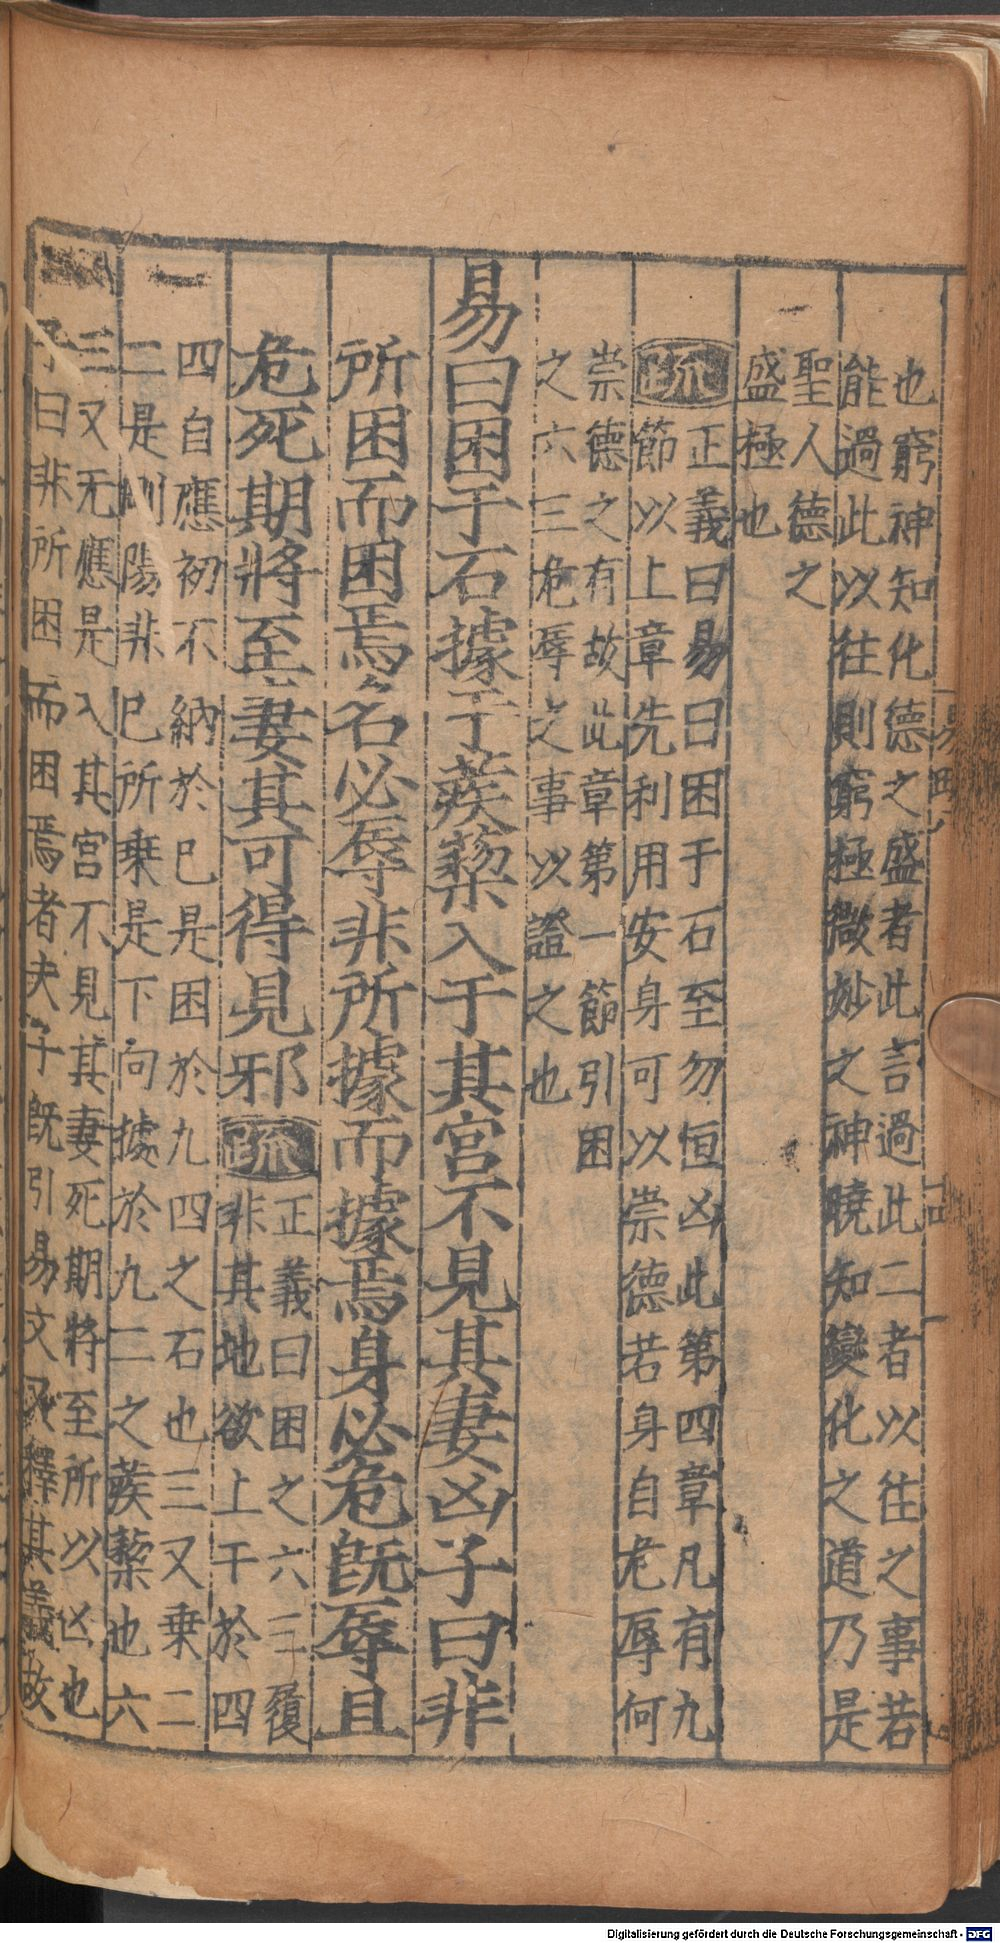 也窮神知化德之盛者此言過此二者以往之事若
能過此以往則窮極微妙之神曉知變化之道乃是
聖人德之
盛極也
疏
正義曰易曰困于石至勿恒凶此第四章凡有九
節以上章先利用安身可以崇德若身自危辱何
崇德之有故此章第一節引困
之六三危辱之事以證之也
易曰困于石據于蒺蔾入于其宮不見其妻凶子曰非
所困而困焉名必辱非所據而據焉身必危旣辱且
危死期將至妻其可得見邪疏
正義曰困之六三履
非其地欲上干於四
四自應初不納於已是困於九四之石也三又乗二
二是剛陽非已所乗是下向據於九二之蒺蔾也六
三又无應是入其宮不見其妻死期將至所以凶也
子曰非所困而困焉者夫子旣引易文又釋其義故
Digitalisierung gefördert durch die Deutsche Forschungsgemeinschaft - DFG